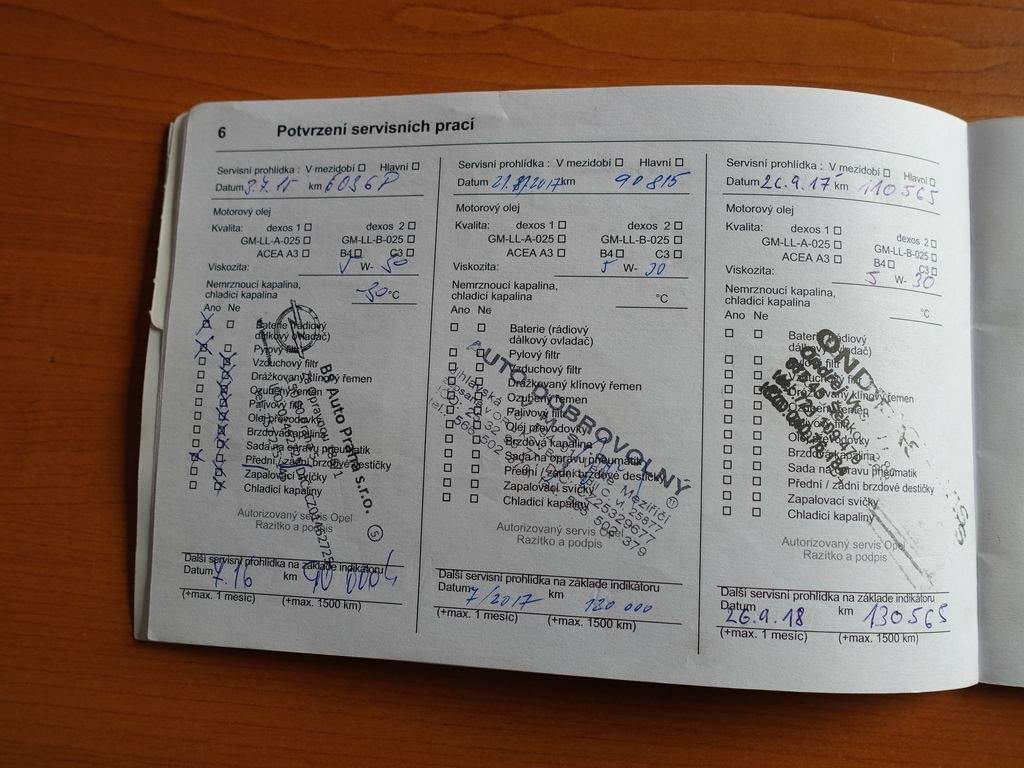 6 Potvrzení servisních prací
Servisní prohlídka : V mezidobí Hlavní
Datum km
Motorový olej
Kvalita: dexos 1 dexos 2
GM-LL-A-025 GM-LL-B-025
ACEA A3 B4 C3
Viskozita: 5 W- 30
Nemrznoucí kapalina,
chladicí kapalina -30 °C
Ano Ne
Baterie (rádiový
dálkový ovladač)
Pylový filtr
Vzduchový filtr
Drážkovaný klínový řemen
Ozubený řemen
Palivový filtr
Olej převodovky
Brzdová kapalina
Sada na opravu pneumatik
Přední / zadní brzdové destičky
Zapalovací svíčky
Chladicí kapaliny
B5 Auto Praha s.r.o.
5
Autorizovaný servis Opel
Razítko a podpis
Další servisní prohlídka na základe indikátoru
Datum 7.16 km
(+max. 1 mesíc) (+max. 1500 km)
Servisní prohlídka : V mezidobí Hlavní
Datum km 90 815
Motorový olej
Kvalita: dexos 1 dexos 2
GM-LL-A-025 GM-LL-B-025
ACEA A3 B4 C3
Viskozita: 5 W- 30
Nemrznoucí kapalina,
chladicí kapalina °C
Ano Ne
Baterie (rádiový
dálkový ovladač)
Pylový filtr
Vzduchový filtr
Drážkovaný klínový řemen
Ozubený řemen
Palivový filtr
Olej převodovky
Brzdová kapalina
Sada na opravu pneumatik
Přední / zadní brzdové destičky
Zapalovací svíčky
Chladicí kapaliny
AUTO DOBROVOLNÝ
Meziříčí
Autorizovaný servis Opel
Razítko a podpis
Další servisní prohlídka na základe indikátoru
Datum 7/2017 km 120 000
(+max. 1 mesíc) (+max. 1500 km)
Servisní prohlídka : V mezidobí Hlavní
Datum 26.9.17 km 110565
Motorový olej
Kvalita: dexos 1 dexos 2
GM-LL-A-025 GM-LL-B-025
ACEA A3 B4 C3
Viskozita: 5 W- 30
Nemrznoucí kapalina,
chladicí kapalina °C
Ano Ne
Baterie
dálkový ovladač)
Pylový filtr
klínový řemen
Olej převodovky
Brzdová kapalina
Sada na opravu pneumatik
Přední / zadní brzdové destičky
Zapalovací svíčky
Chladicí kapaliny
Autorizovaný servis Opel
Razítko a podpis
Další servisní prohlídka na základe indikátoru
Datum 26.9.18 km 130565
(+max. 1 mesíc) (+max. 1500 km)